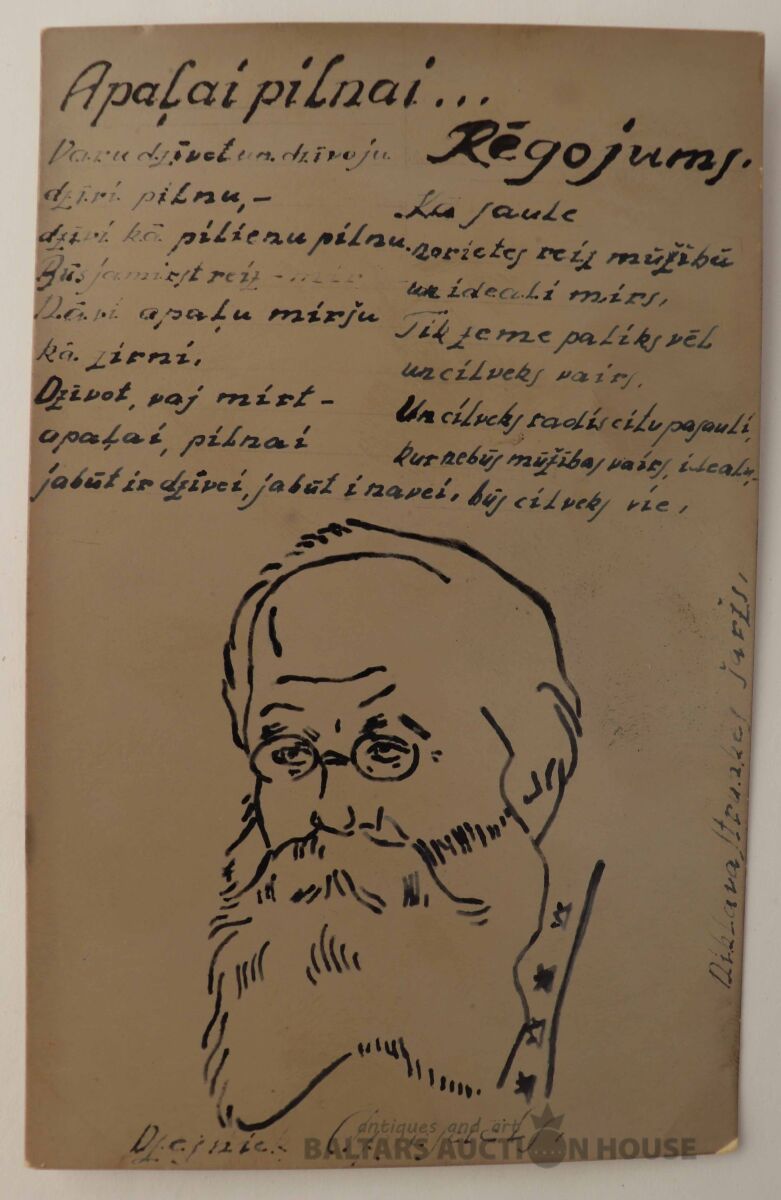 Apaļai pilnai...
Varu dzīvot un dzīvoju
dzīvi pilnu, –
dzīvi kā pilienu pilnu.
Būs jāmirst reiz – mir
Nāvi apaļu miršu
kā zirni.
Dzīvot, vaj mirt –
apaļai, pilnai
jabūt ir dzīvei, jabūt i navei.
Rēgojums.
Kā saule
norietēs reiz mūžībū
un ideali mirs,
Tik zeme paliks vēl
un cilveks vairs,
Un cilveks radīs citu pasauli,
kur nebūs mūžības vairs, idealu,
būs cilveks vie,
Strunkes šaržs,
Dzejnick
antiques and art
BALTARS AUCTION HOUSE